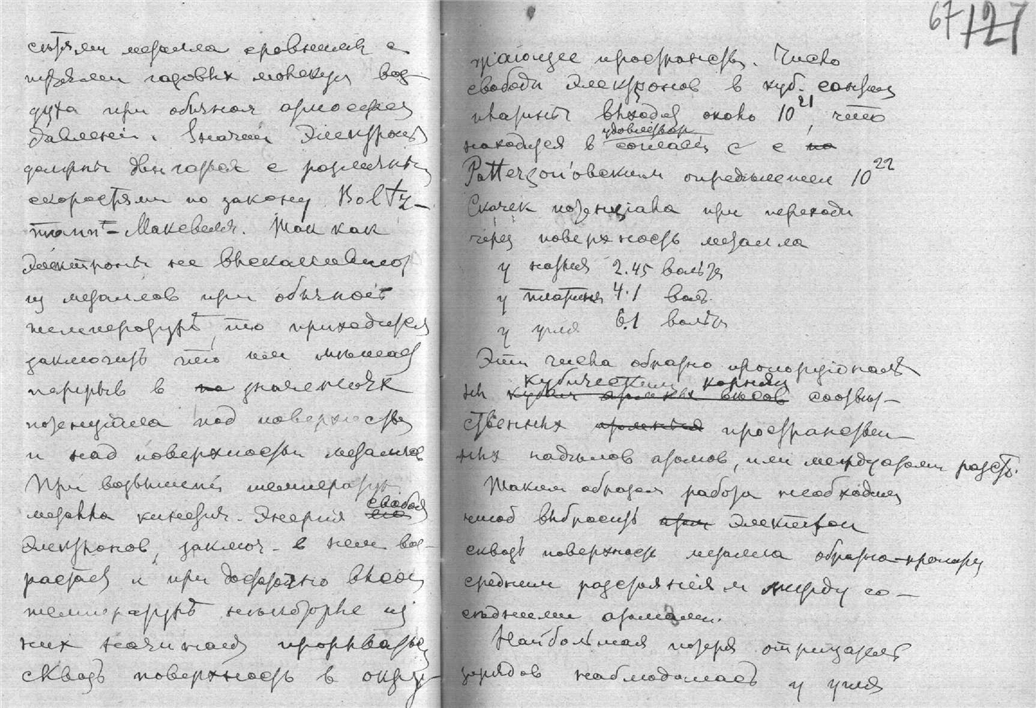 металла сравнима с
газовых молекул воз-
духа при обычном атмосфер
давленiи. Значит электроны
должны двигаться с различным
скоростями по закону Boltz-
mann-Максвеля. Так как
электроны не выскакивают
из металлов при обычной
температурѣ, то приходится
заключить что имѣется
перерыв в значенiях
потенциала под поверхностью
и над поверхностью металлов
При возвышенiи температуры
металла кинетич. Энергiя свобод
электронов, заключ. в нем воз-
растает и при достаточно высок
температурѣ нѣкоторые из
них начинают прорываться
сквозь поверхность в окру-
67 127
жающее пространство. Число
свободн электронов в куб. сантим
платины выходит около 10^21, что
находится в удовлетвор. согласiи с
Patterson'овским опредѣленiем 10^22
Скачек потенциала при переходѣ
через поверхность металла
у натрiя 2.45 вольта
у платины 4.1 вол.
у угля 6.1 вольта
Эти числа обратно пропорцiональ
ны кубическим корням соотвѣт-
ственных пространствен-
ных атомов, или междуатомн расст.
Таким образом работа необходим
чтоб выбросить электрон
сквозь поверхность металла обратно-пропорц
средним разстоянiям между со-
сѣдними атомами.
Наибольшая потеря отрицател
зарядов наблюдалась у угля